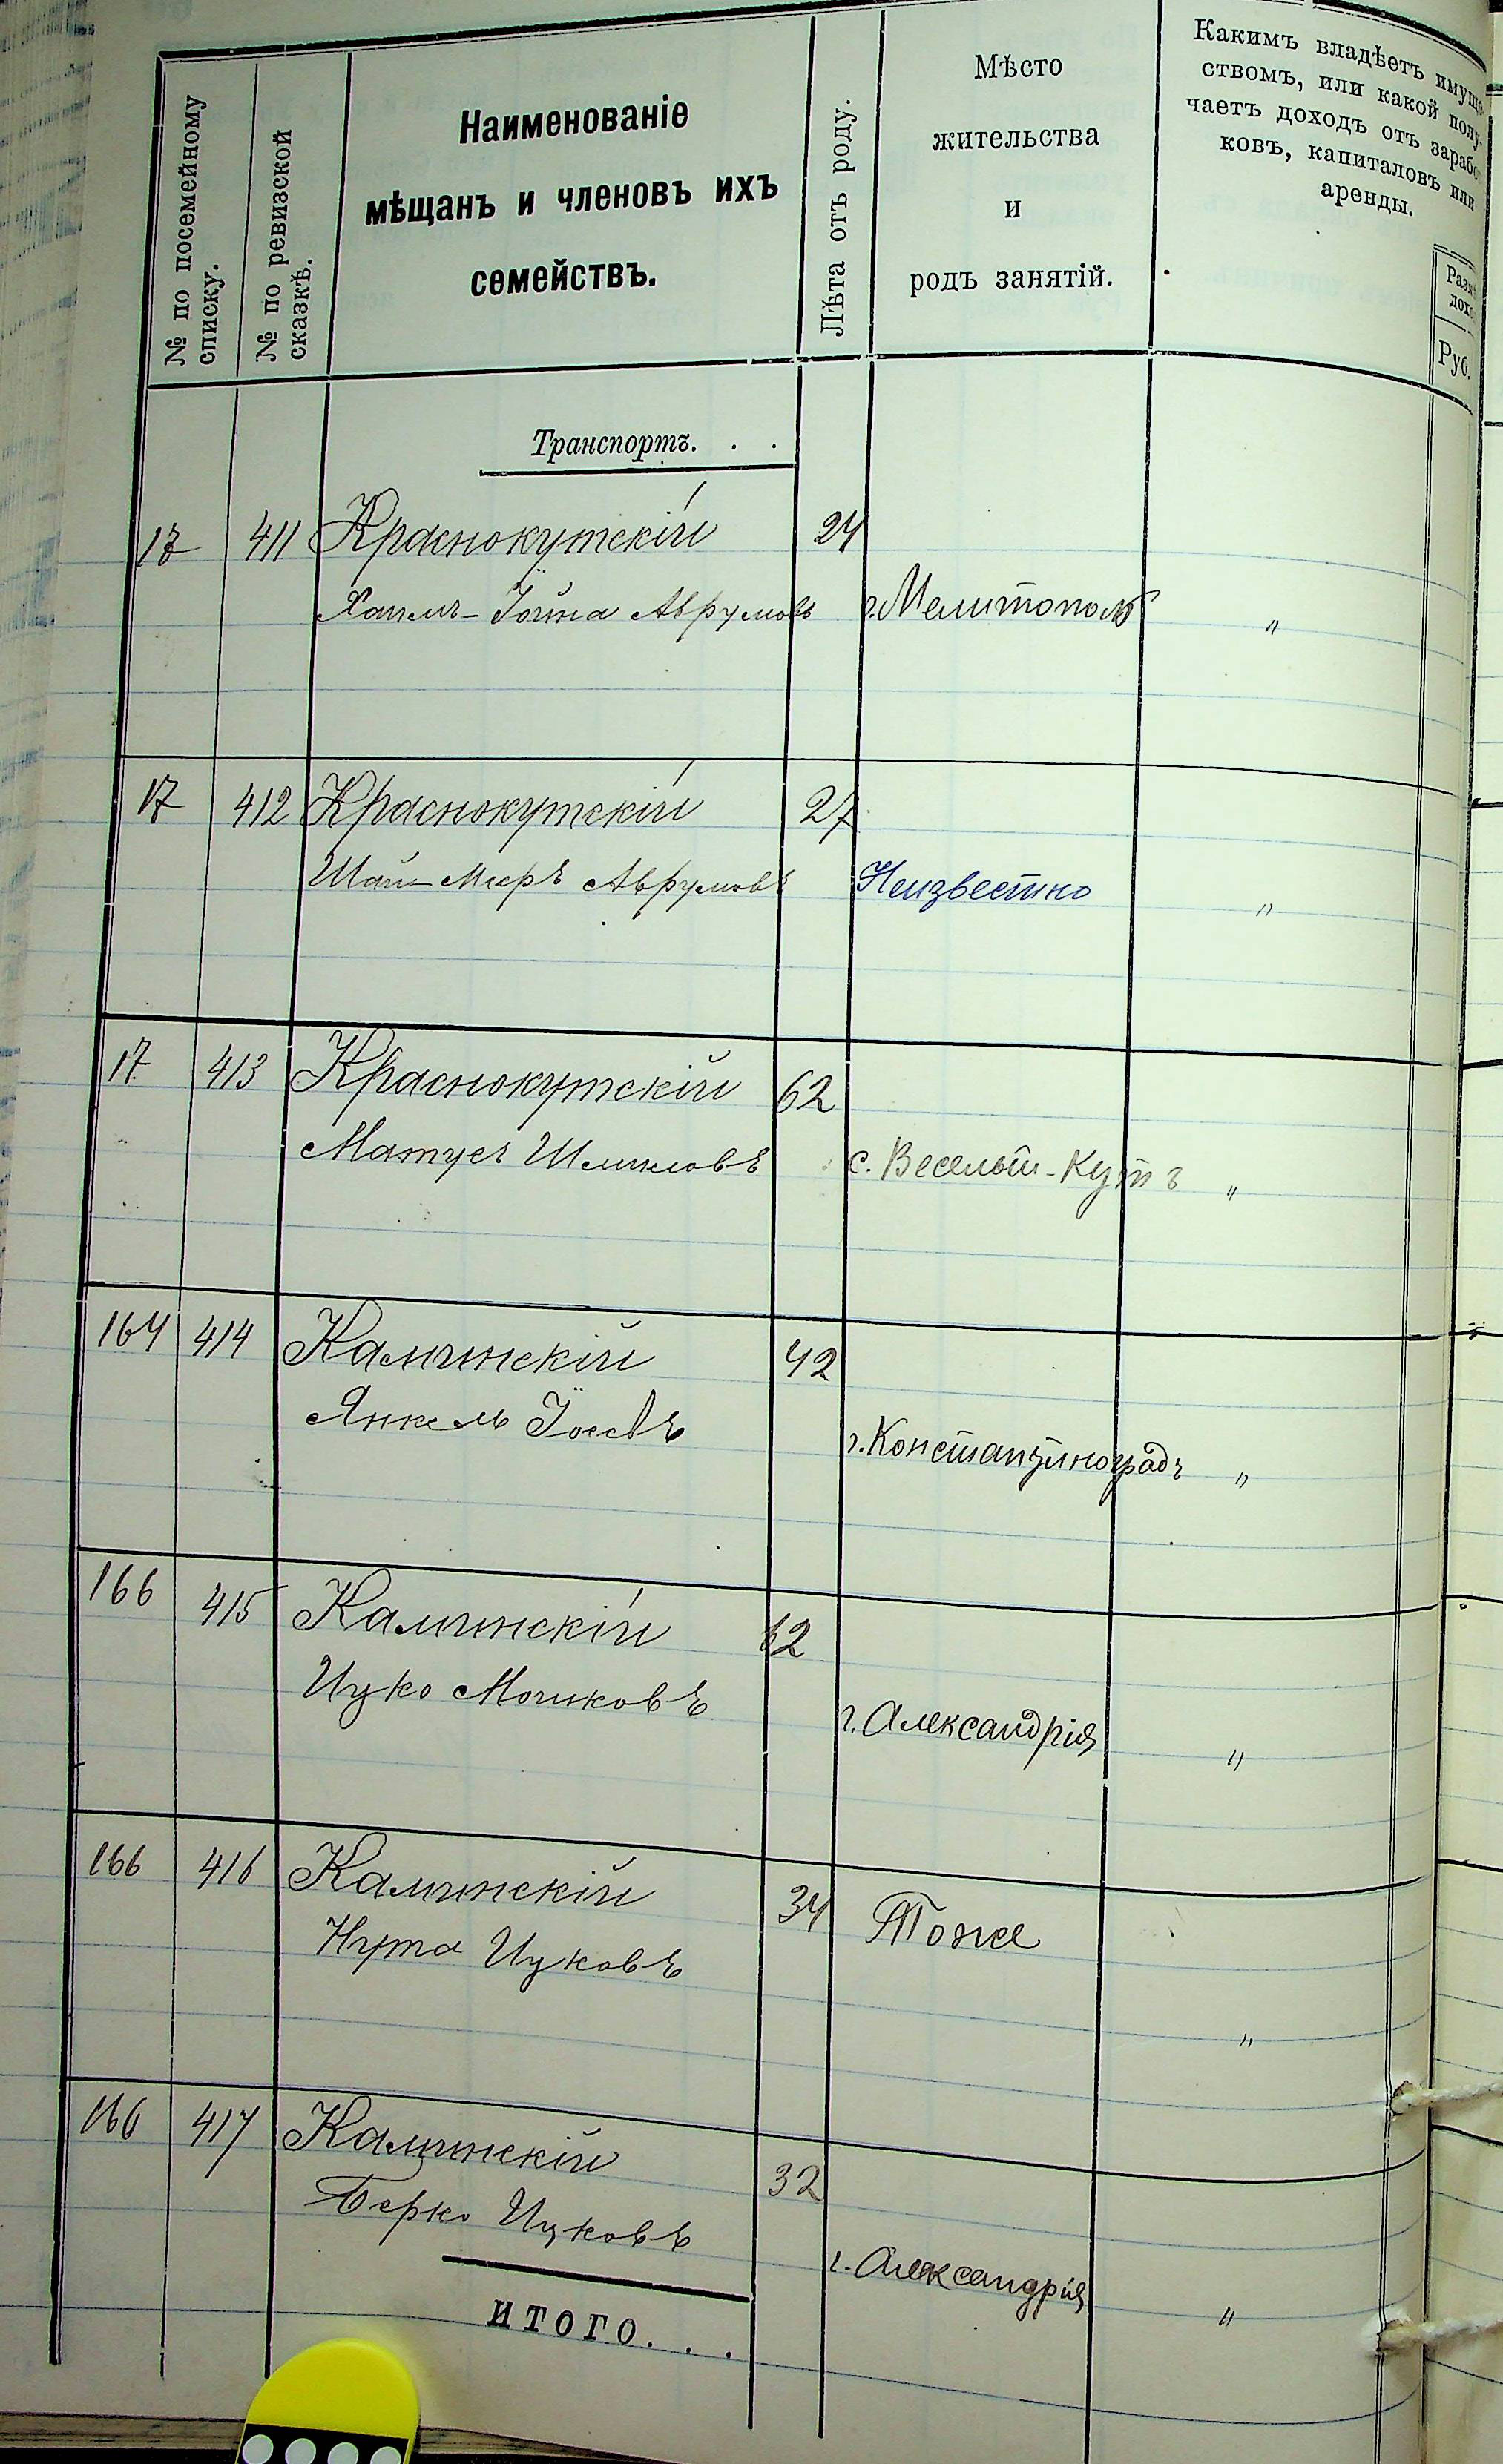 № по посемейному
списку.
№ по ревизской
сказкѣ.
Наименованіе
мѣщанъ и членовъ ихъ
семействъ.
Лѣта отъ роду.
Мѣсто
жительства
и
родъ занятій.
Какимъ владѣетъ имуще
ствомъ, или какой полу-
чаетъ доходъ отъ зарабо
ковъ, капиталовъ или
аренды.
Разм
дохо
Руб.
Транспортъ. . .
17 411 Краснокутскій 24
Хаимъ-Іойна Аврумовъ г. Мелитополь "
17 412 Краснокутскій 27
Шая-Мееръ Аврумовъ Неизвестно "
17 413 Краснокутскій 62
Матусъ Шлиомовъ с. Веселый-Кутъ "
164 414 Калминскій 42
Янкель Іосевъ г. Константиноградъ "
166 415 Калминскій 62
Ицко Мошковъ г. Александрія "
166 416 Калминскій 34 Тоже
Нута Ицковъ "
166 417 Калминскій 32
Берко Ицковъ г. Александрія "
ИТОГО. . .